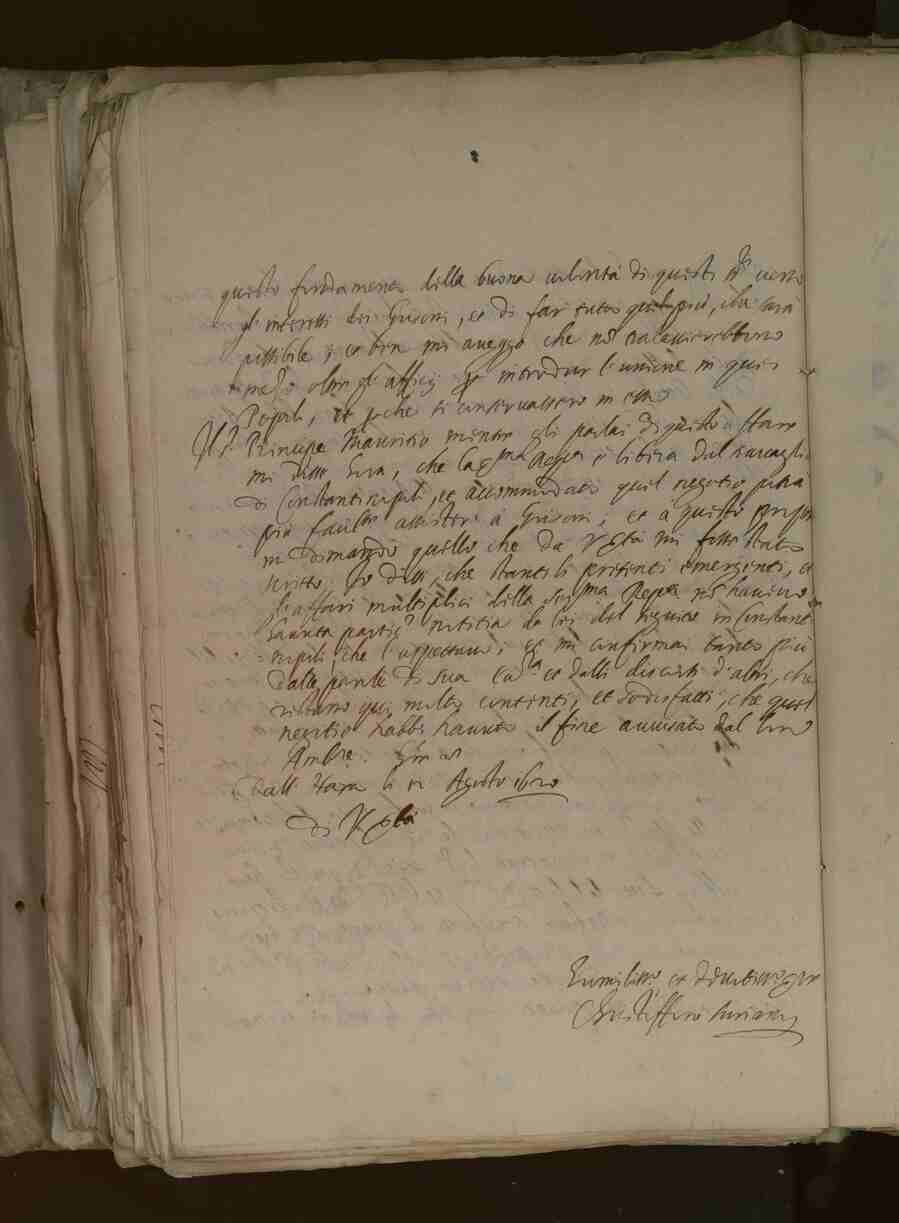 questo fondamento della buona volontà di questi SSri verso
gl'interessi dei Grisoni, et di far tutto quel più, che sarà
possibile; et ben mi aveggo che non tralascierebbono
oltre gl'officij per introdur l'unione in quei
Popoli, et perche si conservassero in essa
Il Sr Principe Mauritio mentre gli parlai di questo affare
mi disse Sera, che la Serma Repca è libera dal travaglio
di Constantinopoli, et accommodato quel negotio potrà
più facilmte assister a Grisoni, et a questo proposito
mi dimandò quello che da V Stà mi fosse stato
scritto. Io dissi, che stanti li presenti emergenti, et
gl'affari multiplici della Serma Repca non havevo
havuta partice notitia da lei del seguito in Constanti
nopoli, che l'aspettavo; et mi confirmai tanto più
dalle parole di sua Ecca et dalli discorsi d'altri, che
restano qui molto contenti, et sodisfatti, che quel
negotio habbi havuto il fine avvisato dal loro
Ambre. Gratie etc
Dall' Haya li Agosto 1620
di V Stà
Humilissmo et Devotissmo servre
Christofforo Suriano